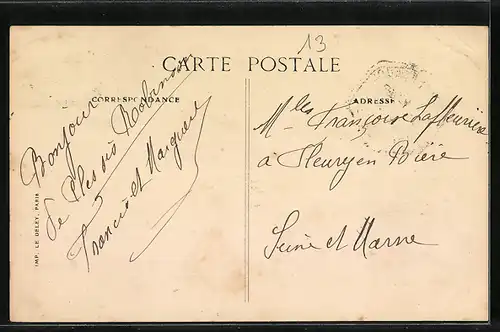 13
CARTE POSTALE
CORRESPONDANCE
ADRESSE
Bonjour
de Plessis Robinson
Francis et Marguerite
Mlles Françoise
a Fleury en Biere
Seine et Marne
IMP. LE DELEY, PARIS